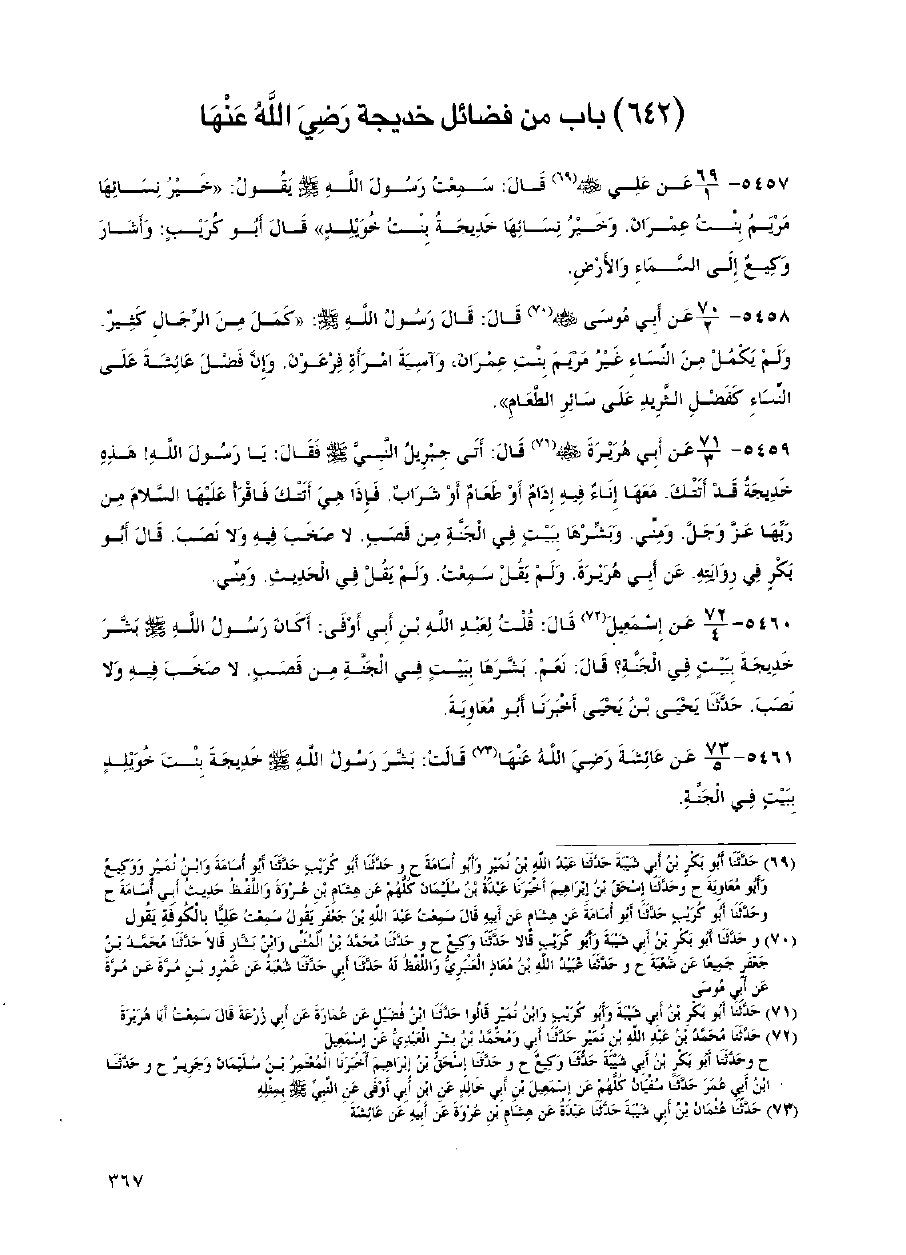 (٦٤٢) باب من فضائل خديجة رَضِيَ اللَّهُ عَنْهَا
٥٤٥٧- ٦٩/١ عَن عَلِي ﷺ(٦٩) قَالَ: سَمِعْتُ رَسُولَ اللَّهِ ﷺ يَقُولُ: «خَيْرُ نِسَائِهَا
مَرْيَمُ بِنْتُ عِمْرَانَ. وَخَيْرُ نِسَائِهَا خَدِيجَةُ بِنْتُ خُوَيْلِدٍ» قَالَ أَبُو كُرَيْبٍ: وَأَشَارَ
وَكِيعٌ إِلَى السَّمَاءِ وَالأَرْضِ.
٥٤٥٨- ٧٠/٢ عَن أَبِي مُوسَى ﷺ(٧٠) قَالَ: قَالَ رَسُولُ اللَّهِ ﷺ: «كَمَلَ مِنَ الرِّجَالِ كَثِيرٌ.
وَلَمْ يَكْمُلْ مِنَ النِّسَاءِ غَيْرُ مَرْيَمَ بِنْتِ عِمْرَانَ، وَآسِيَةَ امْرَأَةِ فِرْعَوْنَ. وَإِنَّ فَضْلَ عَائِشَةَ عَلَى
النِّسَاءِ كَفَضْلِ الثَّرِيدِ عَلَى سَائِرِ الطَّعَامِ».
٥٤٥٩- ٧١/٣ عَن أَبِي هُرَيْرَةَ ﷺ(٧١) قَالَ: أَتَى جِبْرِيلُ النَّبِيَّ ﷺ فَقَالَ: يَا رَسُولَ اللَّهِ! هَذِهِ
خَدِيجَةُ قَدْ أَتَتْكَ. مَعَهَا إِنَاءٌ فِيهِ إِدَامٌ أَوْ طَعَامٌ أَوْ شَرَابٌ. فَإِذَا هِيَ أَتَتْكَ فَاقْرَأْ عَلَيْهَا السَّلامَ مِن
رَبِّهَا عَزَّ وَجَلَّ. وَمِنِّي. وَبَشِّرْهَا بِبَيْتٍ فِي الْجَنَّةِ مِن قَصَبٍ. لا صَخَبَ فِيهِ وَلا نَصَبَ. قَالَ أَبُو
بَكْرٍ فِي رِوَايَتِهِ. عَن أَبِي هُرَيْرَةَ. وَلَمْ يَقُلْ سَمِعْتُ. وَلَمْ يَقُلْ فِي الْحَدِيثِ. وَمِنِّي.
٥٤٦٠- ٧٢/٤ عَن إِسْمَعِيلَ(٧٢) قَالَ: قُلْتُ لِعَبْدِ اللَّهِ بْنِ أَبِي أَوْفَى: أَكَانَ رَسُولُ اللَّهِ ﷺ بَشَّرَ
خَدِيجَةَ بِبَيْتٍ فِي الْجَنَّةِ؟ قَالَ: نَعَمْ. بَشَّرَهَا بِبَيْتٍ فِي الْجَنَّةِ مِن قَصَبٍ. لا صَخَبَ فِيهِ وَلا
نَصَبَ. حَدَّثَنَا يَحْيَى بْنُ يَحْيَى أَخْبَرَنَا أَبُو مُعَاوِيَةَ.
٥٤٦١- ٧٣/٥ عَن عَائِشَةَ رَضِيَ اللَّهُ عَنْهَا(٧٣) قَالَتْ: بَشَّرَ رَسُولُ اللَّهِ ﷺ خَدِيجَةَ بِنْتَ خُوَيْلِدٍ
بِبَيْتٍ فِي الْجَنَّةِ.
(٦٩) حَدَّثَنَا أَبُو بَكْرِ بْنُ أَبِي شَيْبَةَ حَدَّثَنَا عَبْدُ اللَّهِ بْنُ نُمَيْرٍ وَأَبُو أُسَامَةَ ح و حَدَّثَنَا أَبُو كُرَيْبٍ حَدَّثَنَا أَبُو أُسَامَةَ وَابْنُ نُمَيْرٍ وَوَكِيعٌ
وَأَبُو مُعَاوِيَةَ ح وحَدَّثَنَا إِسْحَقُ بْنُ إِبْرَاهِيمَ أَخْبَرَنَا عَبْدَةُ بْنُ سُلَيْمَانَ كُلُّهُمْ عَن هِشَامِ بْنِ عُرْوَةَ وَاللَّفْظُ حَدِيثُ أَبِي أُسَامَةَ ح
وحَدَّثَنَا أَبُو كُرَيْبٍ حَدَّثَنَا أَبُو أُسَامَةَ عَن هِشَامٍ عَن أَبِيهِ قَالَ سَمِعْتُ عَبْدَ اللَّهِ بْنَ جَعْفَرٍ يَقُولُ سَمِعْتُ عَلِيًّا بِالْكُوفَةِ يَقُولُ
(٧٠) و حَدَّثَنَا أَبُو بَكْرِ بْنُ أَبِي شَيْبَةَ وَأَبُو كُرَيْبٍ قَالا حَدَّثَنَا وَكِيعٌ ح و حَدَّثَنَا مُحَمَّدُ بْنُ الْمُثَنَّى وَابْنُ بَشَّارٍ قَالا حَدَّثَنَا مُحَمَّدُ بْنُ
جَعْفَرٍ جَمِيعًا عَن شُعْبَةَ ح و حَدَّثَنَا عُبَيْدُ اللَّهِ بْنُ مُعَاذٍ الْعَنْبَرِيُّ وَاللَّفْظُ لَهُ حَدَّثَنَا أَبِي حَدَّثَنَا شُعْبَةُ عَن عَمْرِو بْنِ مُرَّةَ عَن مُرَّةَ
عَن أَبِي مُوسَى
(٧١) حَدَّثَنَا أَبُو بَكْرِ بْنُ أَبِي شَيْبَةَ وَأَبُو كُرَيْبٍ وَابْنُ نُمَيْرٍ قَالُوا حَدَّثَنَا ابْنُ فُضَيْلٍ عَن عُمَارَةَ عَن أَبِي زُرْعَةَ قَالَ سَمِعْتُ أَبَا هُرَيْرَةَ
(٧٢) حَدَّثَنَا مُحَمَّدُ بْنُ عَبْدِ اللَّهِ بْنِ نُمَيْرٍ حَدَّثَنَا أَبِي وَمُحَمَّدُ بْنُ بِشْرٍ الْعَبْدِيُّ عَن إِسْمَعِيلَ
ح وحَدَّثَنَا أَبُو بَكْرِ بْنُ أَبِي شَيْبَةَ حَدَّثَنَا وَكِيعٌ ح و حَدَّثَنَا إِسْحَقُ بْنُ إِبْرَاهِيمَ أَخْبَرَنَا الْمُعْتَمِرُ بْنُ سُلَيْمَانَ وَجَرِيرٌ ح و حَدَّثَنَا
ابْنُ أَبِي عُمَرَ حَدَّثَنَا سُفْيَانُ كُلُّهُمْ عَن إِسْمَعِيلَ بْنِ أَبِي خَالِدٍ عَن ابْنِ أَبِي أَوْفَى عَن النَّبِيِّ ﷺ بِمِثْلِهِ
(٧٣) حَدَّثَنَا عُثْمَانُ بْنُ أَبِي شَيْبَةَ حَدَّثَنَا عَبْدَةُ عَن هِشَامِ بْنِ عُرْوَةَ عَن أَبِيهِ عَن عَائِشَةَ
٣٦٧